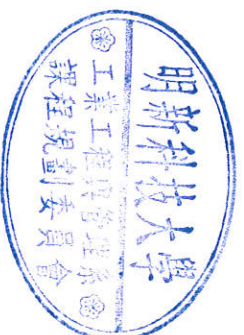 明新科技大學
工業工程與管理系
課程規劃委員會